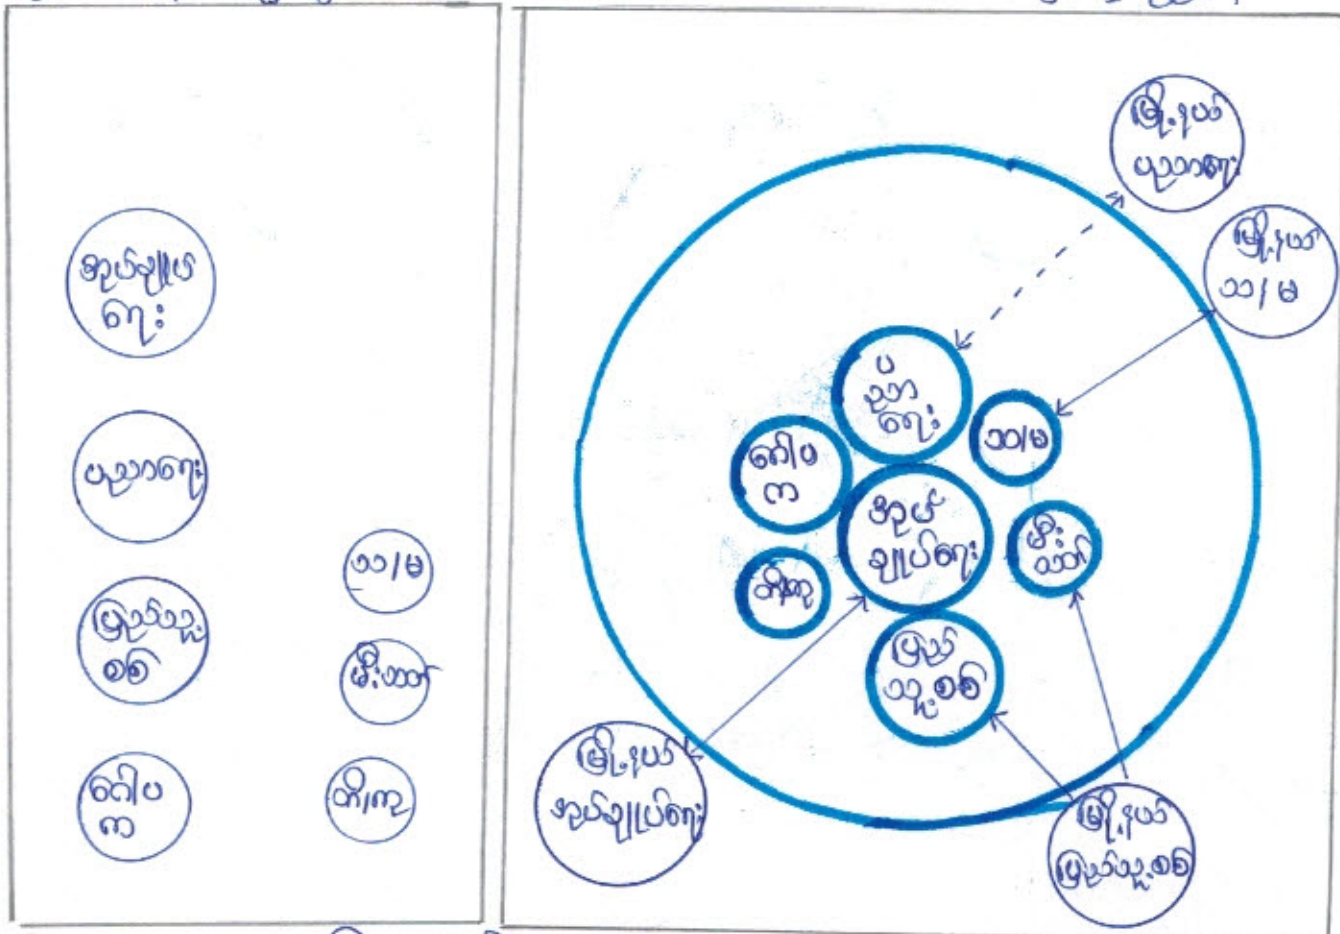 အုပ်ချုပ်
ရေး
ပညာရေး
ပြည်သူ့
စစ်
ဂေါပ
က
သာ/မ
မီးသတ်
မြို့နယ်
ပညာရေး
မြို့နယ်
သာ/မ
ပ
ညာ
ရေး
သာ/မ
ဂေါပ
က
အုပ်
ချုပ်ရေး
မီး
သတ်
ပြည်
သူ့စစ်
မြို့နယ်
အုပ်ချုပ်ရေး
မြို့နယ်
ပြည်သူ့စစ်